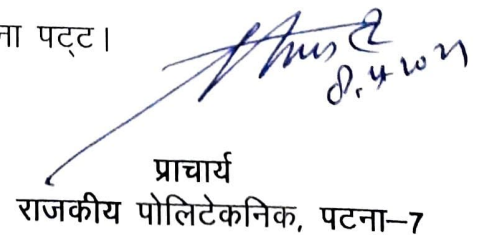 ना पट्ट।
8.4.2021
प्राचार्य
राजकीय पोलिटेकनिक, पटना–7